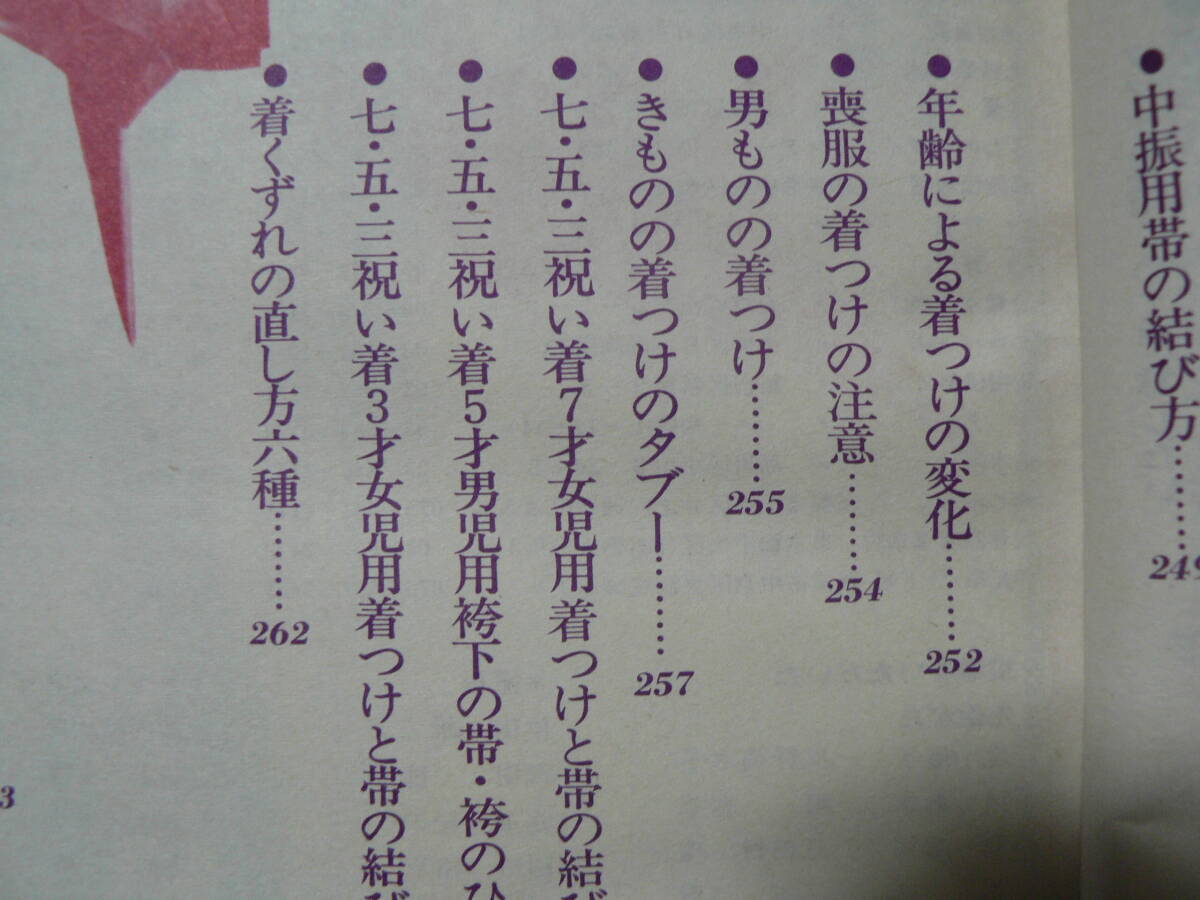 ●中振用帯の結び方………249
●年齢による着つけの変化………252
●喪服の着つけの注意………254
●男ものの着つけ………255
●きものの着つけのタブー………257
●七・五・三祝い着7才女児用着つけと帯の結び
●七・五・三祝い着5才男児用袴下の帯・袴のひ
●七・五・三祝い着3才女児用着つけと帯の結び
●着くずれの直し方六種………262
3